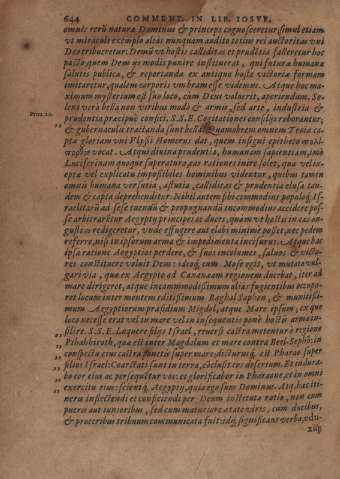 644 COMMENT. IN LIB. IOSVE,
omnis rerū naturæ Dominus & princeps cognosceretur, simul etiam
vt miraculi exemplo aliàs nunquam audito totius rei auctoritas vni
Deo tribueretur: Demū vt hostis calliditas et prudētia falleretur hoc
pacto quem Deus ijs modis punire instituerat, qui futura humana
salutis publica, & reportanda ex antiquo hoste victoria formam
imitaretur, qualem corporis vmbram esse videmus. Atque hoc ma-
ximum mysterium est suo loco, cum Deus voluerit, aperiendum. So-
lent verò bella non viribus modò & armis, sed arte, industria &
Prou. 20. prudentia præcipuè confici. S.S.E. Cogitationes consilijs roborantur,
& gubernaculu tractanda sunt bella. Quamobrem omnem Troia ca-
pta gloriam vni Vlyssi Homerus dat, quem insigni epitheto
vocat. Atqui diuina prudentia, humanam sapientiam, imò
Luciferinam quoque superatura, eas rationes inire solet, qua vel in-
epta vel explicatu impossibiles hominibus videntur, quibus tamen
omnis humana versutia, astutia, calliditas & prudentia elusa tan-
dem & capta deprehenditur. Nihil autem sibi commodius populoq, Is-
raëlitarū ad sese tuendū & propugnandū incommodius accidere pos-
se arbitraretur Aegypti principes ac duces, quàm vt hostis in eas an-
gustias redigeretur, vnde effugere aut elabi minimè posset, nec pedem
referre, nisi in ipsorum arma & impedimenta incisurus. Atque hac
ipsa ratione Aegyptios perdere, & suos incolumes, saluos & victo-
res constituere voluit Deus: ideoq, cum Mose egit, vt mutata vul-
gari via, qua ex Aegypto ad Cananaam regionem ducebat, iter ad
mare dirigeret, atque incommodissimum aliàs fugientibus occupa-
ret locum inter montem editissimum Baghal Saphon, & munitissi-
mum Aegyptiorum præsidium Migdol, atque Mare ipsum, ex quo
loco necesse erat vel in mare vel in insequentis ponè hostis arma tu-
„ silire. S.S.E. Loquere filijs Israel, reuersi castra metentur è regione
„ Pihabhiroth, qua est inter Magdalum et mare contra Beel-Sephō: in
„ conspectu eius castra ponetis super mare; dicturusq, est Pharao super
„ filios Israel: Coarctati sunt in terra, cōclusit eos desertum. Et indura-
„ bo cor eius ac persequētur vos: et glorificabor in Pharaone, et in omni
„ exercitu eius: scientq, Aegyptij, quia ego sum Dominus. Atq, hac iti-
neris inflectendi et conficiendi per Deum instituta ratio, non cum
pueris aut iunioribus, sed cum maturiore ætate viris, cum ducibus,
& proceribus tribuum communicata fuit: idq, significant verba, edu-